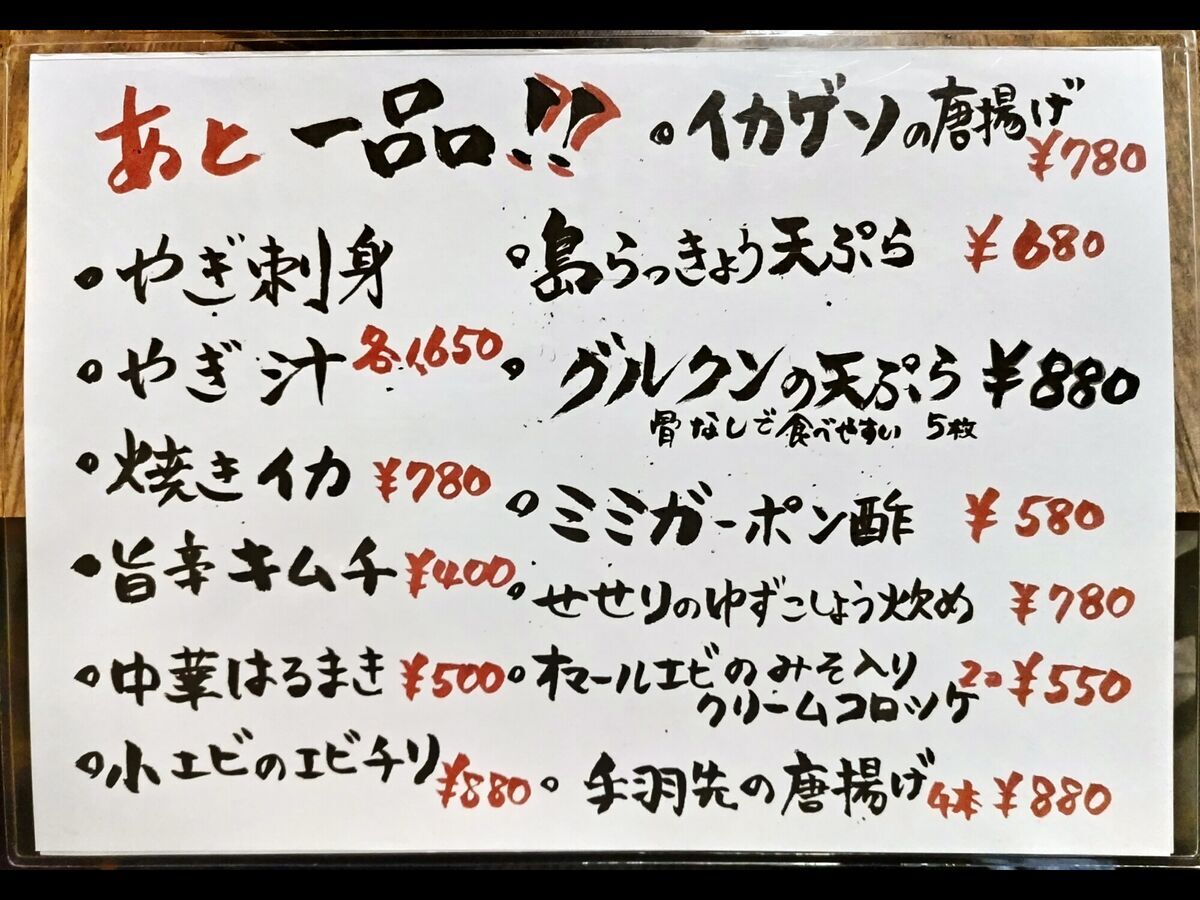 あと一品!!
・やぎ刺身
・やぎ汁 各1,650
・焼きイカ ¥780
・旨辛キムチ ¥400
・中華はるまき ¥500
・小エビのエビチリ ¥880
・イカゲソの唐揚げ ¥780
・島らっきょう天ぷら ¥680
・グルクンの天ぷら ¥880
骨なしで食べやすい 5枚
・ミミガーポン酢 ¥580
・せせりのゆずこしょう炒め ¥780
・オマールエビのみそ入り
クリームコロッケ 2コ ¥550
・手羽先の唐揚げ 4本 ¥880